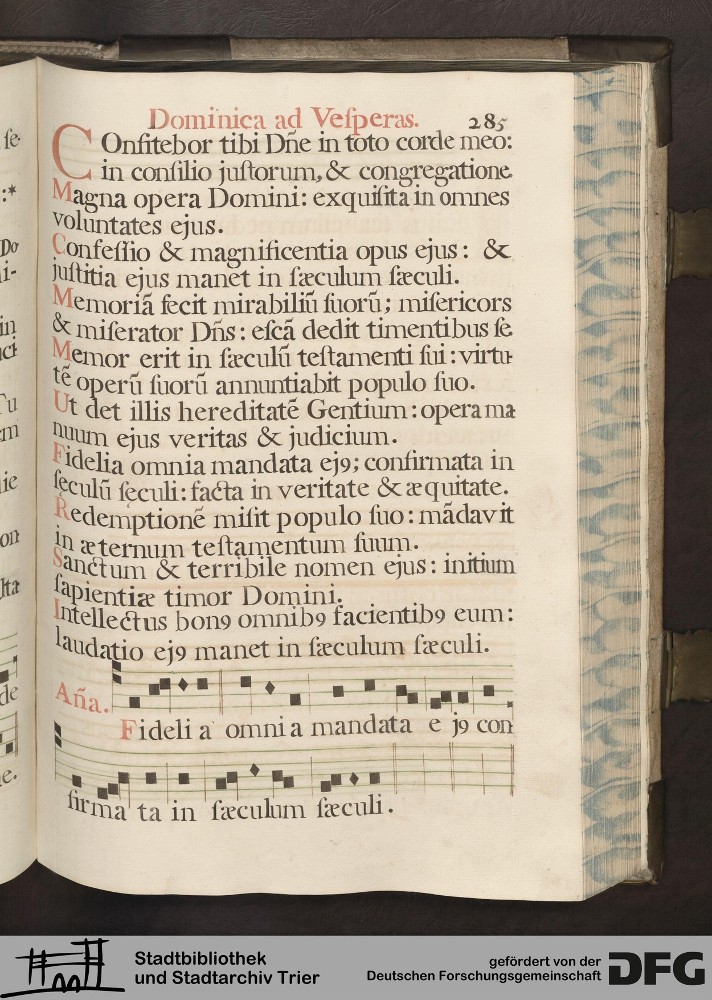 Dominica ad Veſperas. 285
COnfitebor tibi Dñe in toto corde meo:
in conſilio juſtorum, & congregatione
Magna opera Domini: exquiſita in omnes
voluntates ejus.
Confeſſio & magnificentia opus ejus: &
juſtitia ejus manet in ſæculum ſæculi.
Memoriã fecit mirabiliũ ſuorũ; miſericors
& miſerator Dñs: eſcã dedit timentibus ſe
Memor erit in ſæculũ teſtamenti ſui: virtu-
tẽ operũ ſuorũ annuntiabit populo ſuo.
Ut det illis hereditatẽ Gentium: opera ma
nuum ejus veritas & judicium.
Fidelia omnia mandata ej9; confirmata in
ſeculũ ſeculi: facta in veritate & æquitate.
Redemptionẽ miſit populo ſuo: mãdavit
in æternum teſtamentum ſuum.
Sanctum & terribile nomen ejus: initium
ſapientiæ timor Domini.
Intellectus bon9 omnib9 facientib9 eum:
laudatio ej9 manet in ſæculum ſæculi.
Aña.
Fideli a omni a mandata e j9 con
firma ta in ſæculum ſæculi.
ſe-
:*
Do
i-
in
Tu
m
lie
on
lta
de
e.
Stadtbibliothek
und Stadtarchiv Trier
gefördert von der
Deutschen Forschungsgemeinschaft
DFG